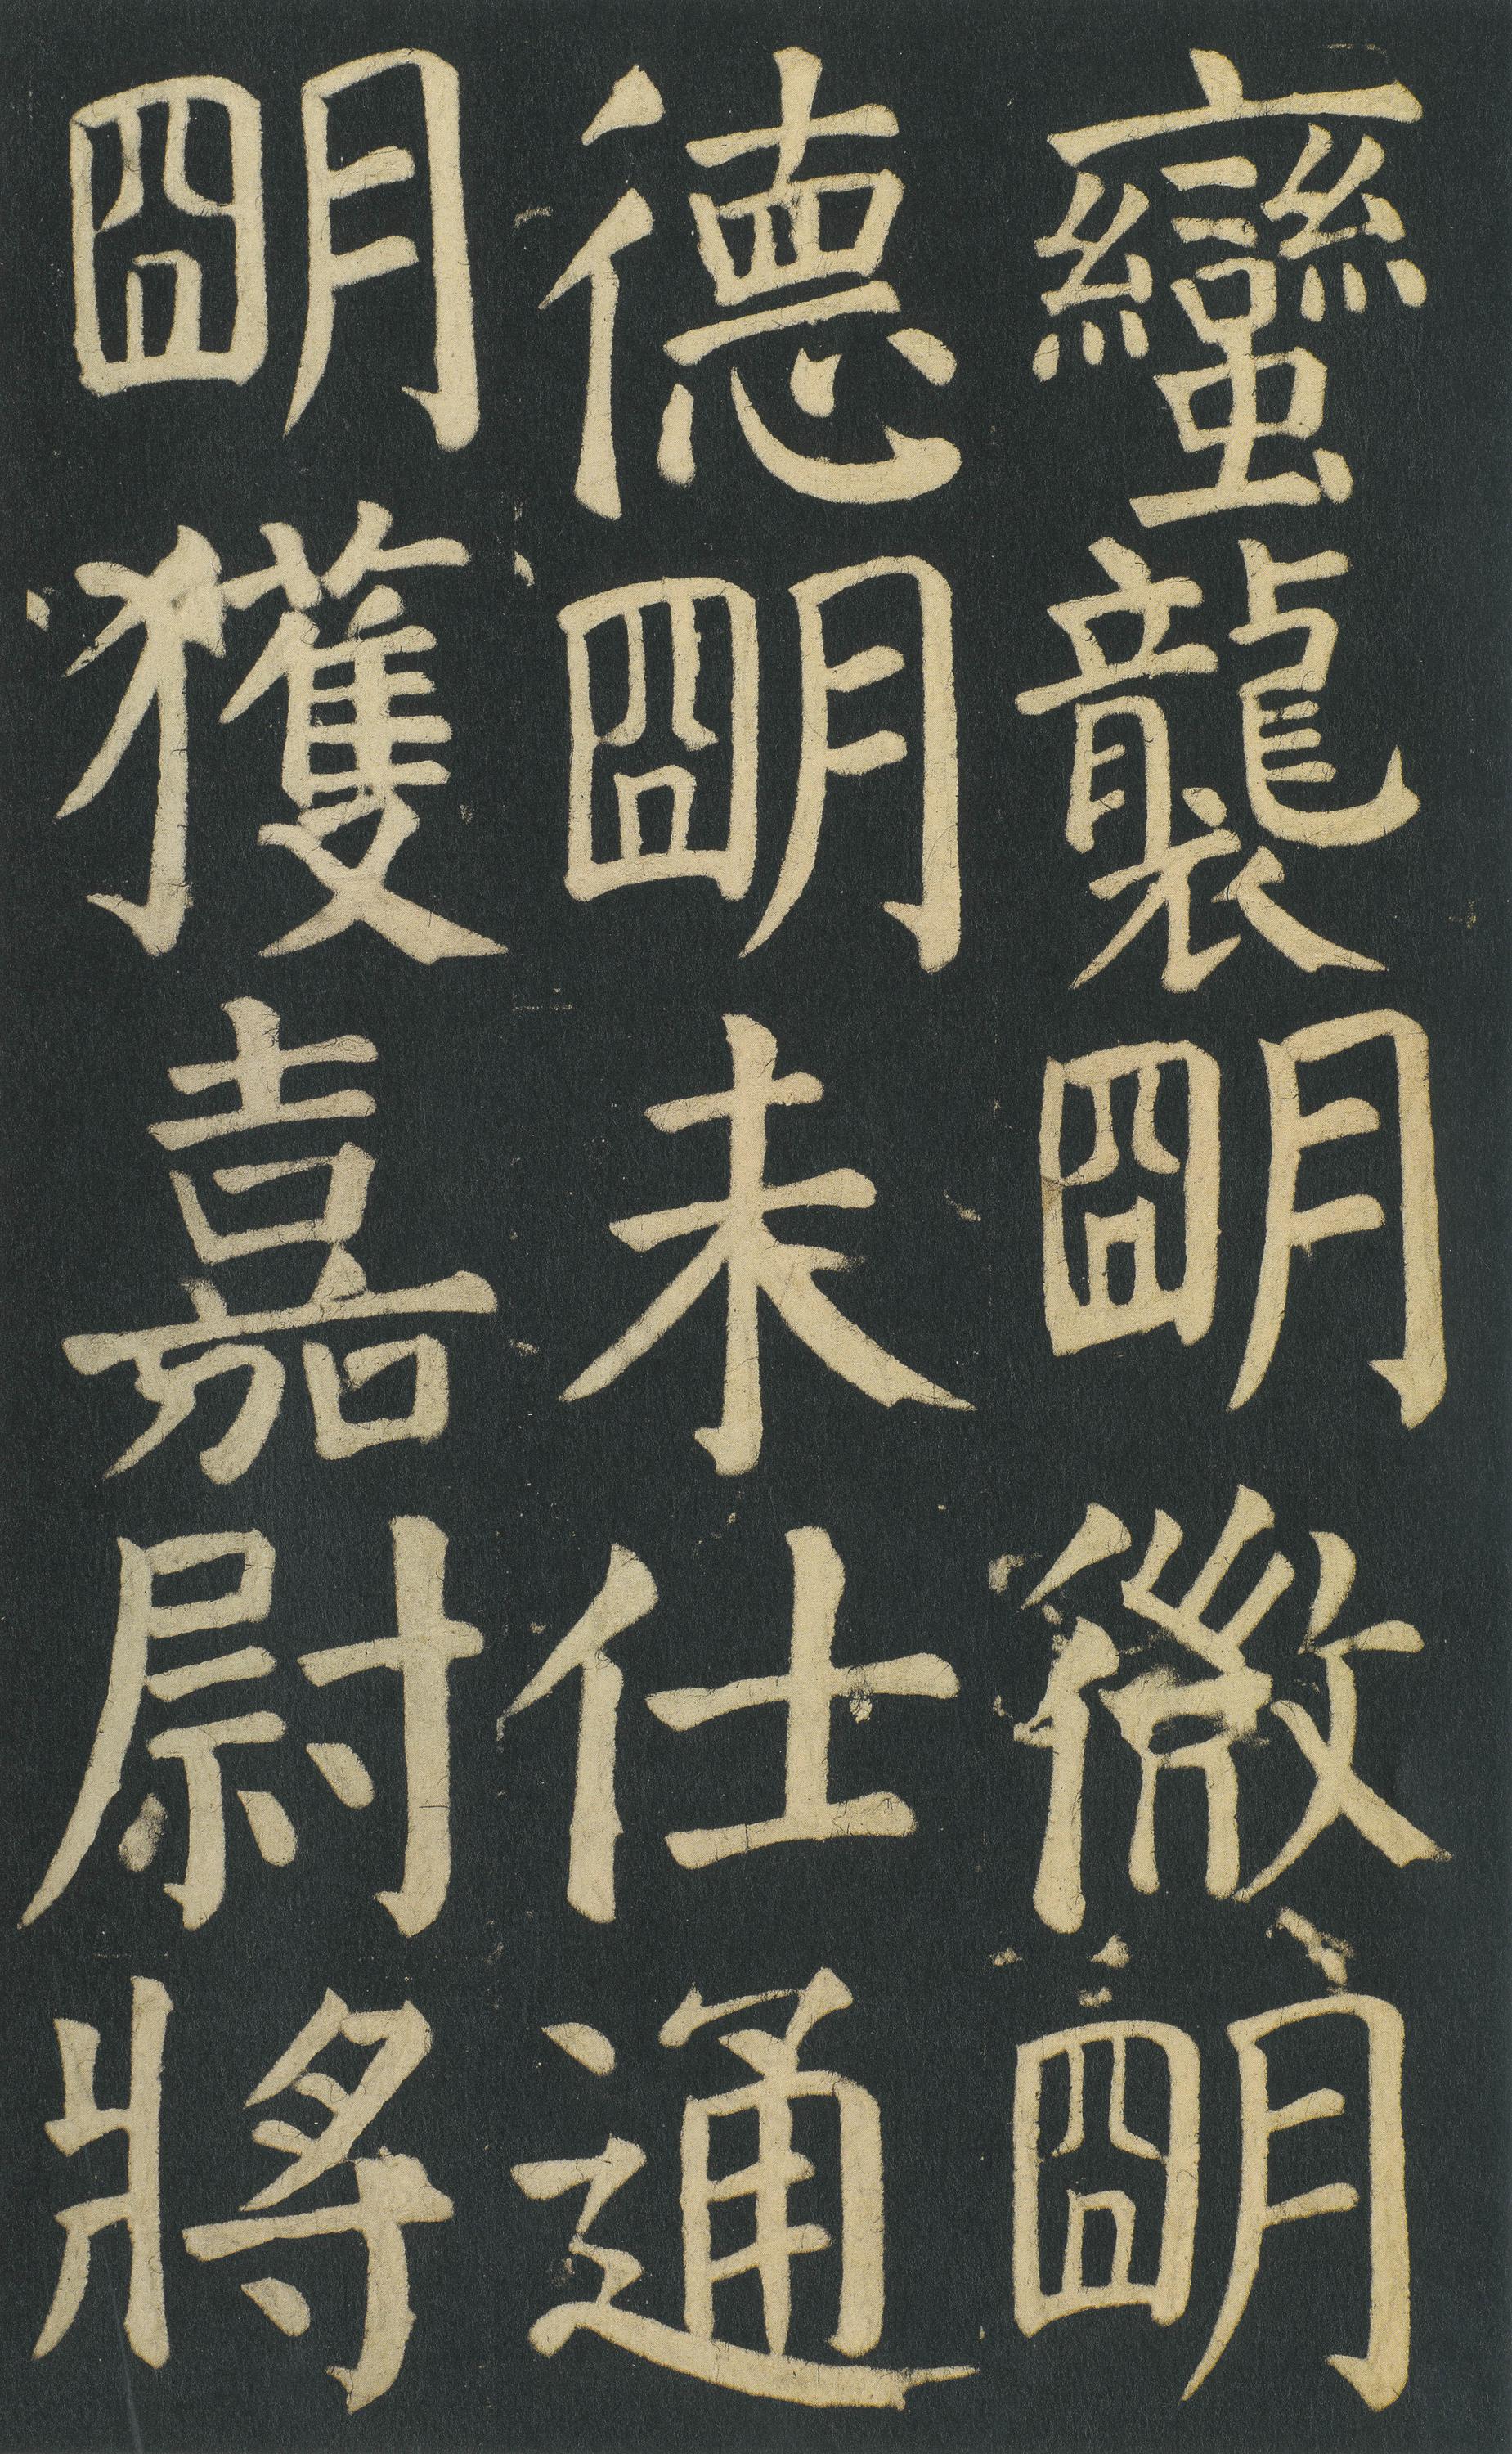 蠻襲明微明
德明未仕通
明獲嘉尉將